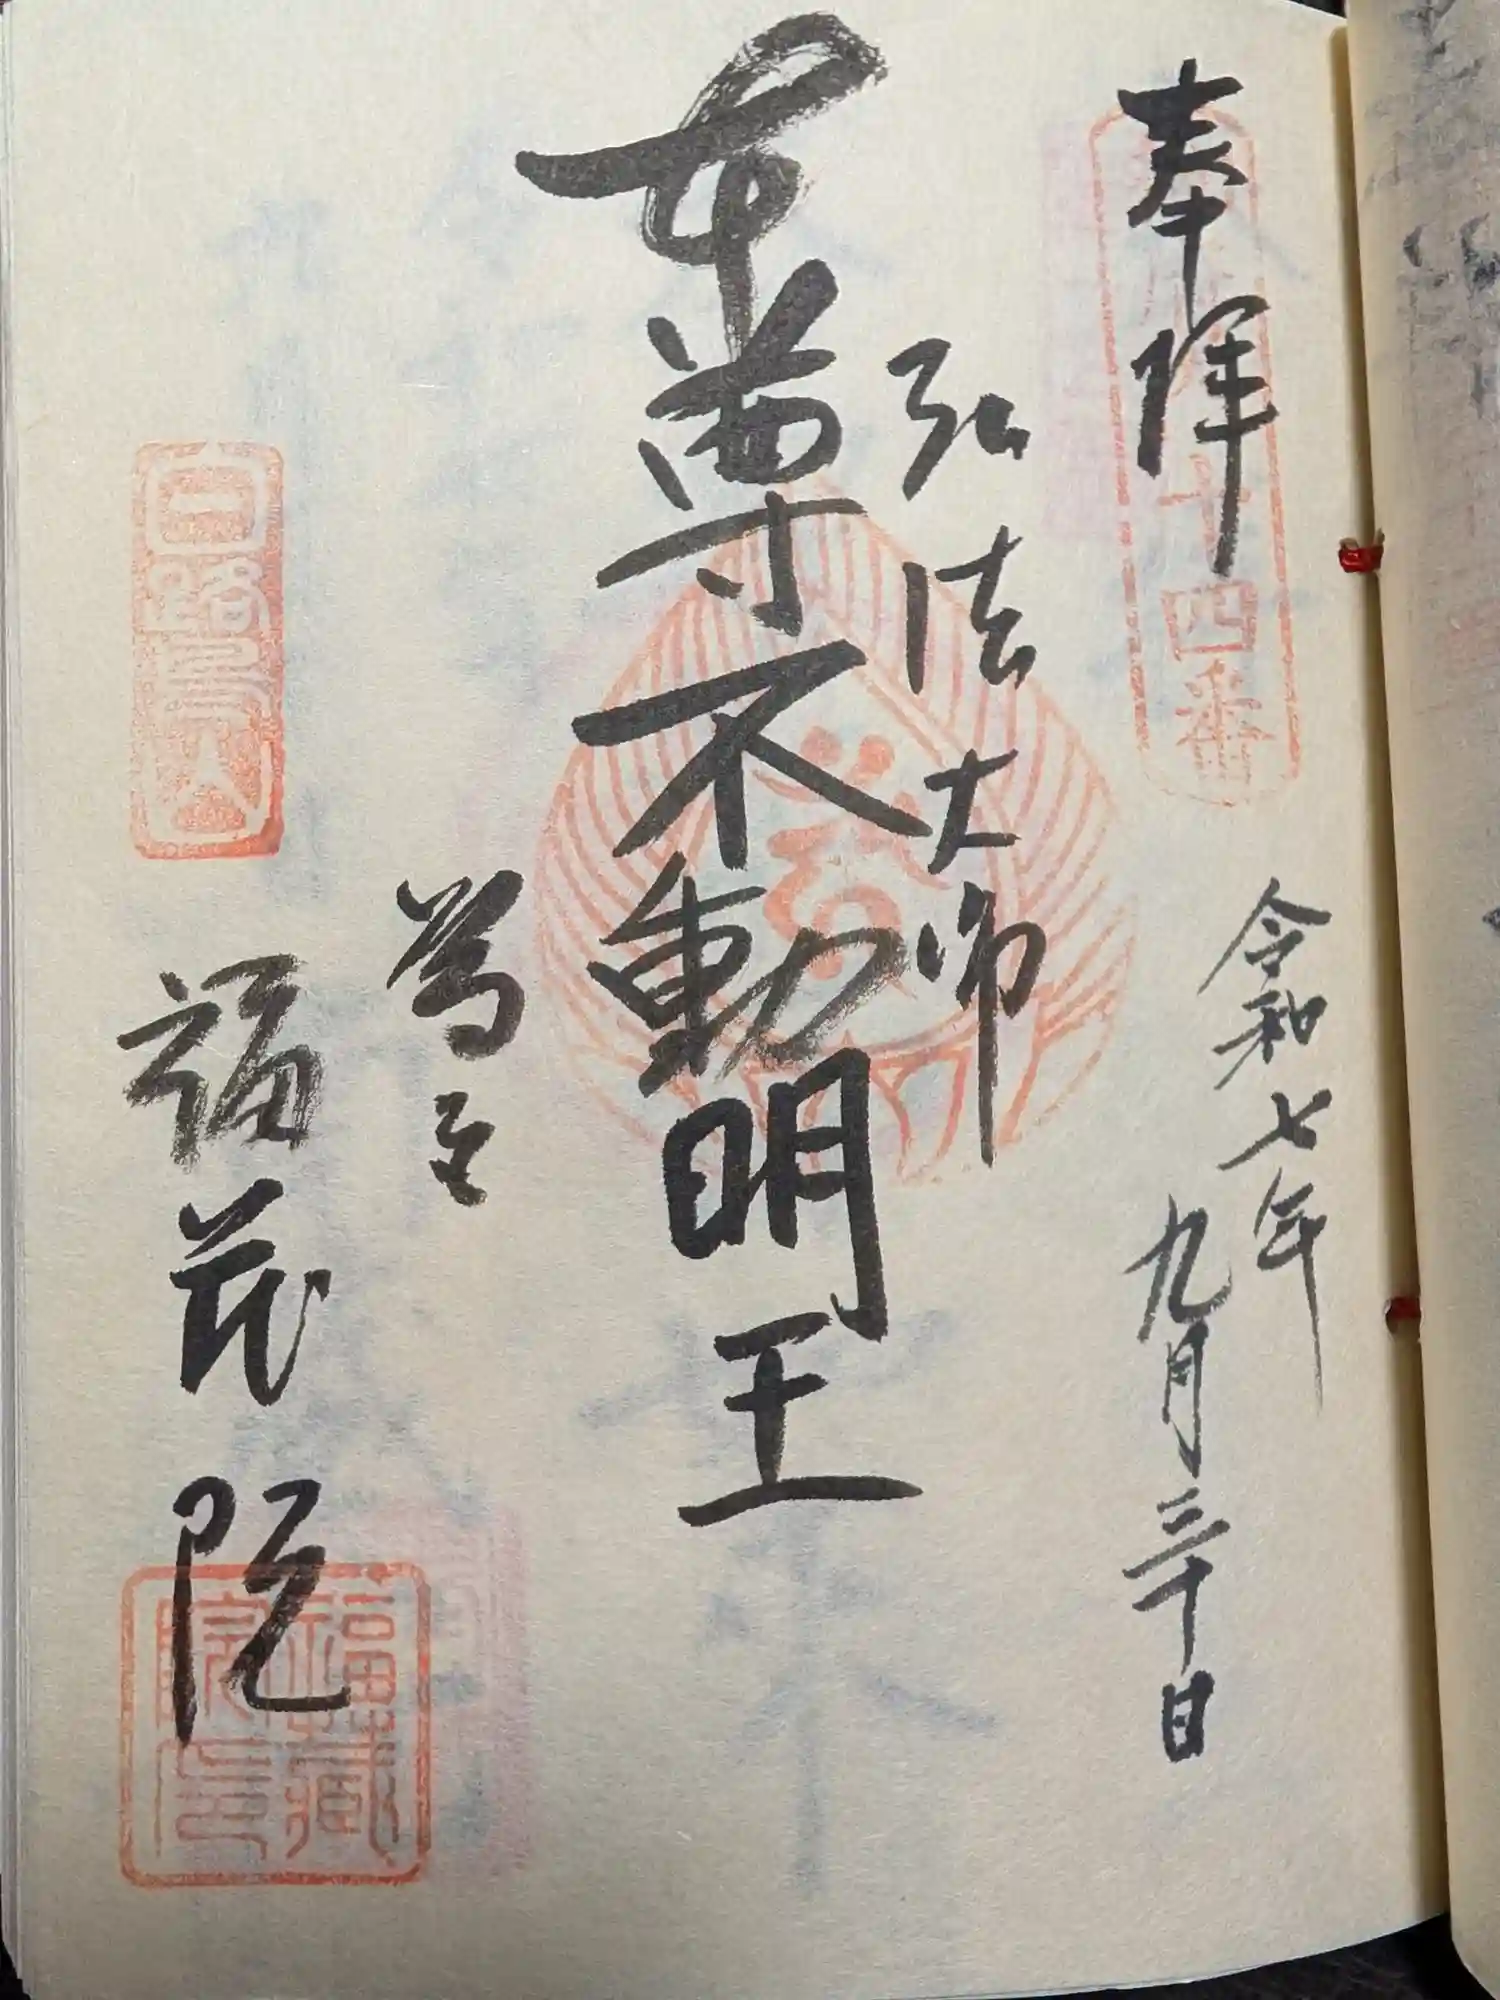 奉拝
十四番
令和七年
九月三十日
弘法大師
本尊不動明王
福蔵院
福藏院印